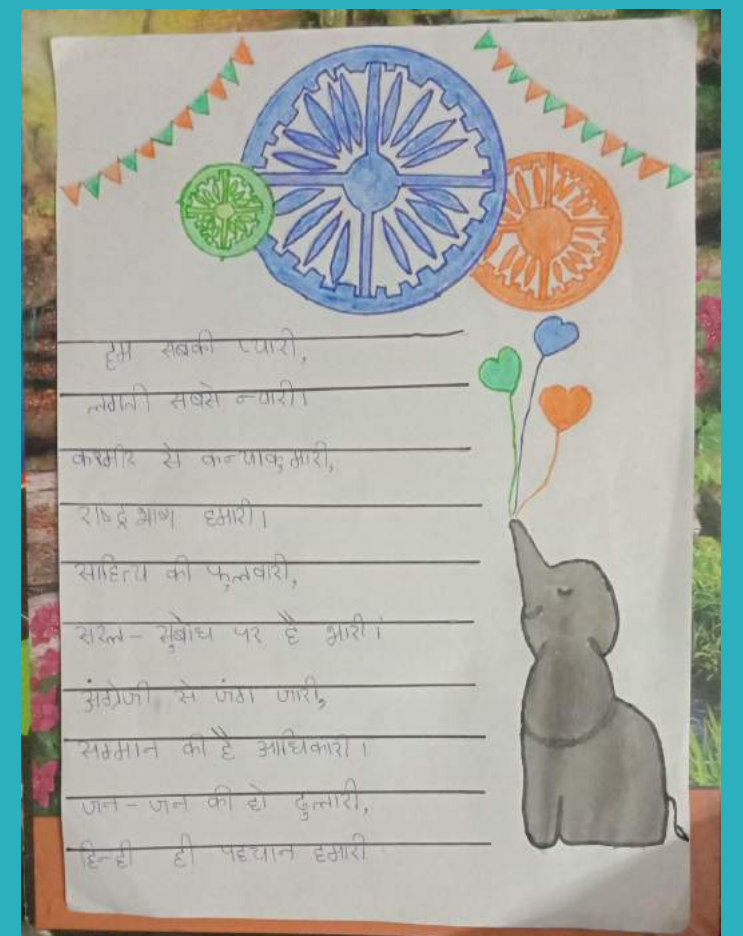 हम सबकी प्यारी,
लगती सबसे न्यारी।
कश्मीर से कन्याकुमारी,
राष्ट्रभाषा हमारी।
साहित्य की फुलवारी,
सरल-सुबोध पर है भारी।
अंग्रेजी से जंग जारी,
सम्मान की है अधिकारी।
जन-जन की हो दुलारी,
हिन्दी ही पहचान हमारी